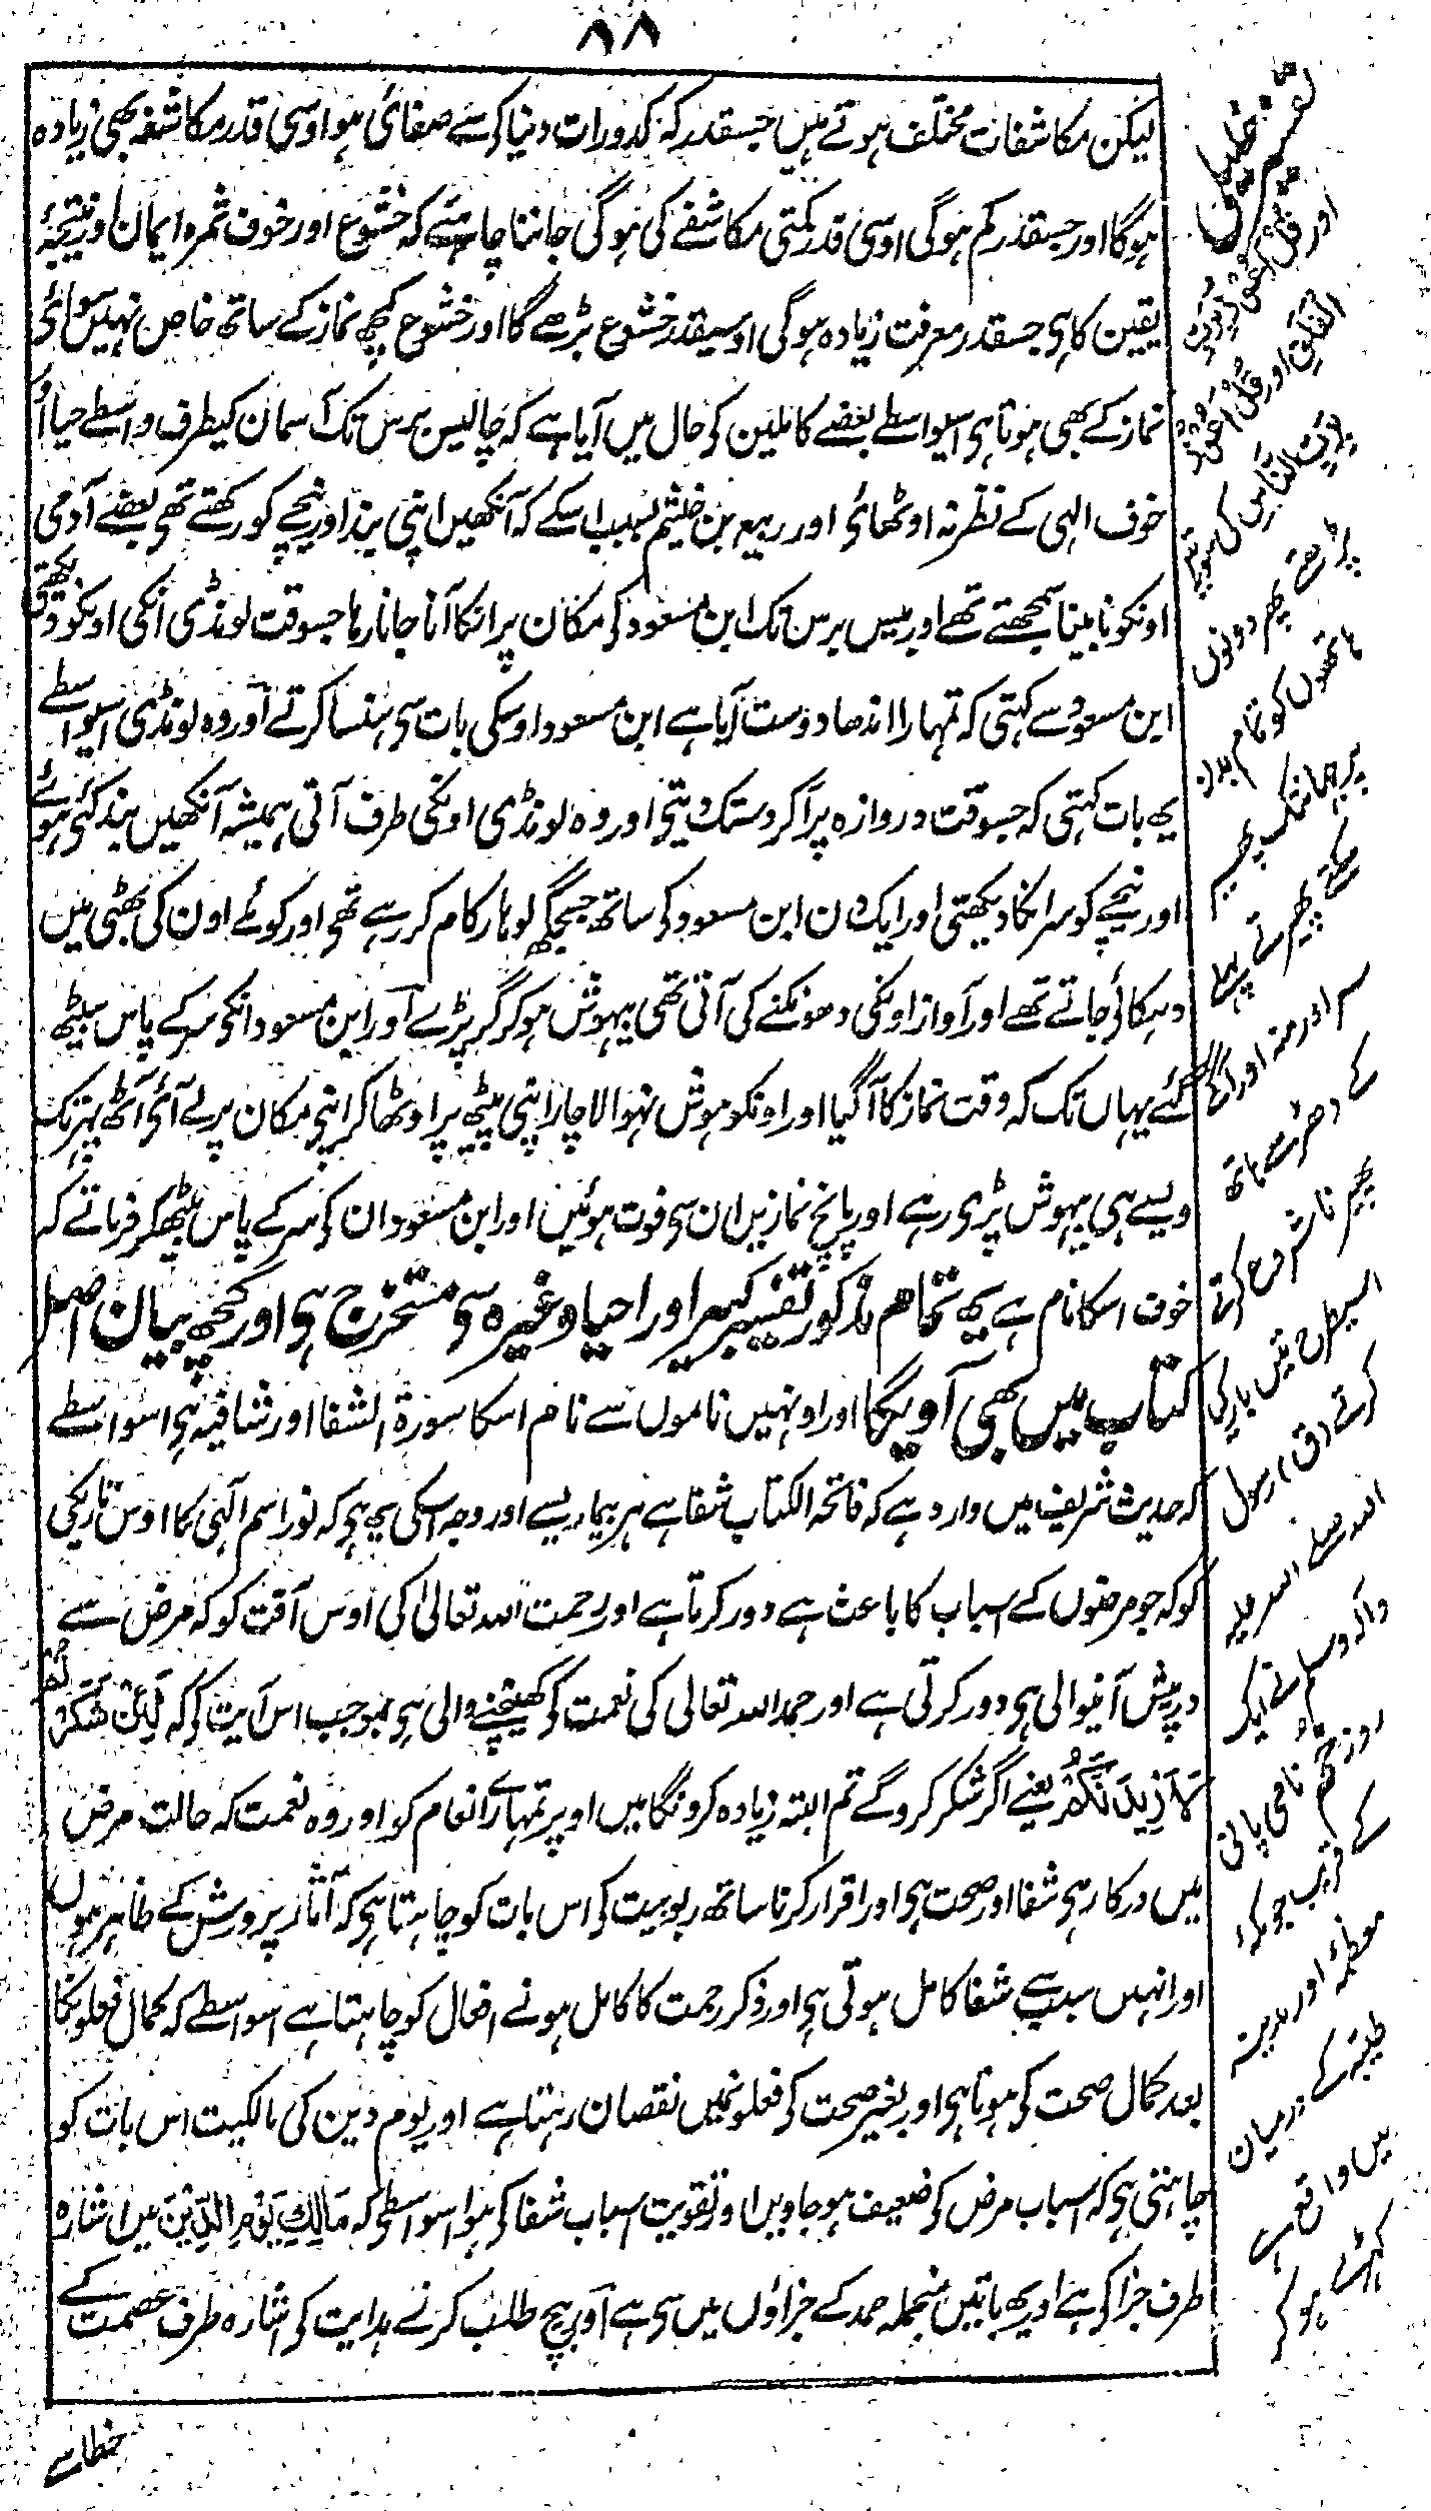 ۸۸
لیکن مکاشفات مختلف ہوتے ہیں جسقدر کہ کدورات دنیا کی سے صفائی ہو اوسی قدر مکاشفہ بھی زیادہ
ہوگا اور جسقدر کم ہوگی اوسی قدر کمتی مکاشفے کی ہوگی جاننا چاہئیے کہ خشوع اور خوف ثمرہ ایمان اور نتیجۂ
یقین کا ہی جسقدر معرفت زیادہ ہوگی اوسیقدر خشوع بڑھے گا اور خشوع کچھ نماز کے ساتھ خاص نہیں سوائی
نماز کے بھی ہوتا ہی اسیواسطے بعضے کاملین کی حال میں آیا ہے کہ چالیس برس تک آسمان کیطرف واسطے حیا اور
خوف الہی کے نظر نہ اوٹھائی اور ربیعہ بن خثیم بسبب اسکے کہ آنکھیں اپنی بند اور نیچے کو رکھتے تھی بعضے آدمی
اونکو نابینا سمجھتے تھے اور بیس برس تک ابن مسعود کی مکان پر انکا آنا جانا رہا جسوقت لونڈی انکی اونکو دیکھتی
ابن مسعود سے کہتی کہ تمہارا اندھا دوست آیا ہے ابن مسعود اوسکی بات سی ہنسا کرتے اور وہ لونڈی اسیواسطے
یہ بات کہتی کہ جسوقت دروازہ پر آکر دستک دیتی اور وہ لونڈی اونکی طرف آتی ہمیشہ آنکھیں بند کئی ہوئے
اور نیچے کو سر انکا دیکھتی اور ایک دن ابن مسعود کی ساتھ جسجگہ لوہار کام کر رہے تھی اور کوئلے اون کی بھٹی میں
دہکائی جاتے تھے اور آواز اونکی دھونکنے کی آتی تھی بیہوش ہوکر گر پڑے اور ابن مسعود انکی سر کے پاس بیٹھ
گئے یہاں تک کہ وقت نماز کا آگیا اور اونکو ہوش نہوا لاچار اپنی پیٹھ پر اوٹھا کر اپنی مکان پر لے آئی آٹھ پہر تک
ویسے ہی بیہوش پڑی رہے اور پانچ نمازیں ان سی فوت ہوئیں اور ابن مسعود ان کی سر کے پاس بیٹھکر فرماتے کہ
خوف اسکا نام ہے یہ تمام مذکور تفسیر کبیر اور احیا وغیرہ سی مستخرج ہی اور کچھ بیان اصل
کتاب میں بھی آویگا اور اونہیں ناموں سے نام اسکا سورۃ الشفا اور شافیہ ہی اسواسطے
کہ حدیث شریف میں وارد ہے کہ فاتحہ الکتاب شفا ہے ہر بیماریسے اور وجہ اسکی یہ ہی کہ نور اسم الٰہی کا اوس تاریکی
کو کہ جو مرضوں کے اسباب کا باعث ہے دور کرتا ہے اور رحمت اللہ تعالیٰ کی اوس آفت کو کہ مرض سے
درپیش آنیوالی ہی دور کرتی ہے اور حمد اللہ تعالی کی نعمت کی کھینچنے والی ہی بموجب اس آیت کی کہ لَئِنْ شَكَرْتُمْ
لَاَزِيدَنَّكُمْ یعنے اگر شکر کروگے تم البتہ زیادہ کرونگا میں اوپر تمہارے انعام کو اور وہ نعمت کہ حالت مرض
میں درکار ہی شفا اور صحت ہی اور اقرار کرنا ساتھ ربوبیت کی اس بات کو چاہتا ہی کہ آثار پرورش کے ظاہر ہوں
اور انہیں سبب سے شفا کامل ہوتی ہی اور ذکر رحمت کا کامل ہونے افعال کو چاہتا ہے اسواسطے کہ کمال فعلونکا
بعد کمال صحت کی ہوتا ہی اور بغیر صحت کی فعلونمیں نقصان رہتا ہے اور یوم دین کی مالکیت اس بات کو
چاہتی ہی کہ اسباب مرض کی ضعیف ہوجاویں اور تقویت اسباب شفا کی ہو اسواسطے کہ مَالِكِ يَوْمِ الدِّينِ میں اشارہ
طرف جزا کی ہے اور یہ باتیں منجملہ حمد کے جزاؤں میں سی ہے اور بیچ طلب کرنے ہدایت کی اشارہ طرف عصمت کے
خطا سے
اور قل اعوذ برب
الفلق اور قل اعوذ
برب الناس کی
پڑھتے پھر دونوں
ہاتھوں کو تمام بدن
پر جہانتک
پھیرتے پہلے
سر اور منہ اور آگے
کے دھڑ سے ہاتھ
پھیرنا شروع کرتے
اسیطرح تین بار
کرتے (ق) رسول
اللہ صلے اللہ علیہ
وآلہ وسلم نے ایک
روز خم نامی پانی
کے قریب جو مکہ
معظمہ اور مدینہ
طیبہ کے درمیان
میں واقع ہے
کھڑے ہو کر